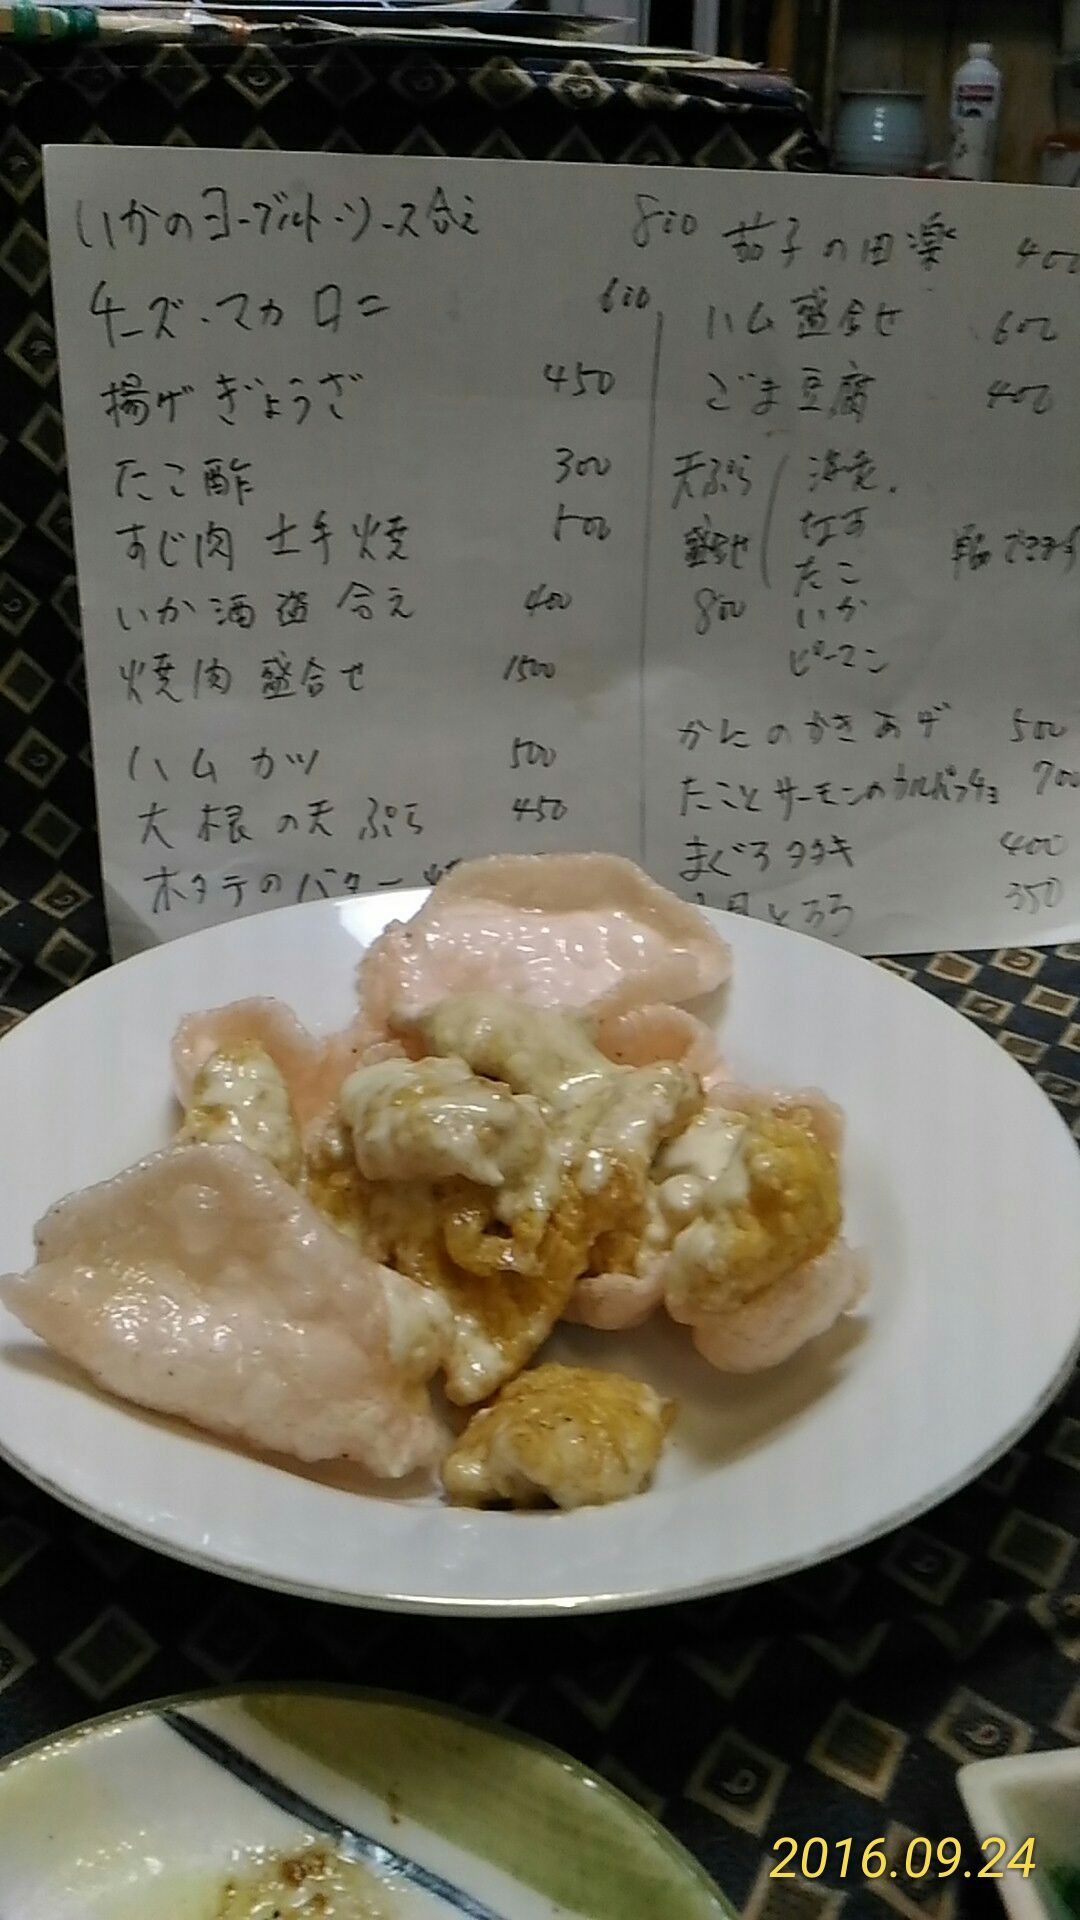 いかのヨーグルト・ソース合え 800
チーズ・マカロニ 600
揚げぎょうざ 450
たこ酢 300
すじ肉 土手焼 500
いか酒盗合え 400
焼肉盛合せ 1500
ハムカツ 500
大根の天ぷら 450
ホタテのバター焼
茄子の田楽 400
ハム盛合せ 600
ごま豆腐 400
天ぷら
盛合せ
800
海老
なす
たこ
いか
ピーマン
単品できます
かにのかきあげ 500
たことサーモンのカルパッチョ 700
まぐろタタキ 400
月とろろ 350
2016.09.24